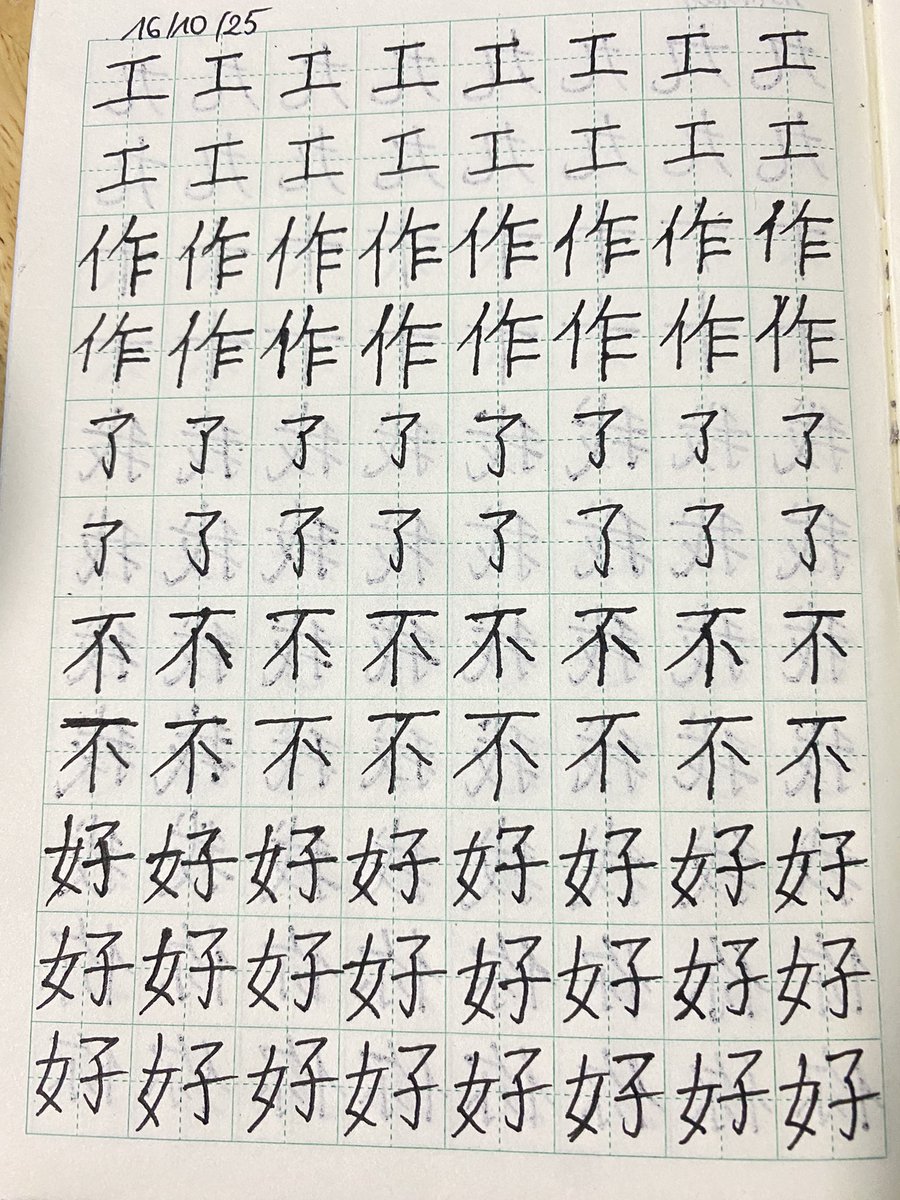 16/10/25
工工工工工工工工
工工工工工工工工
作作作作作作作作
作作作作作作作作
了了了了了了了了
了了了了了了了了
不不不不不不不不
不不不不不不不不
好好好好好好好好
好好好好好好好好
好好好好好好好好